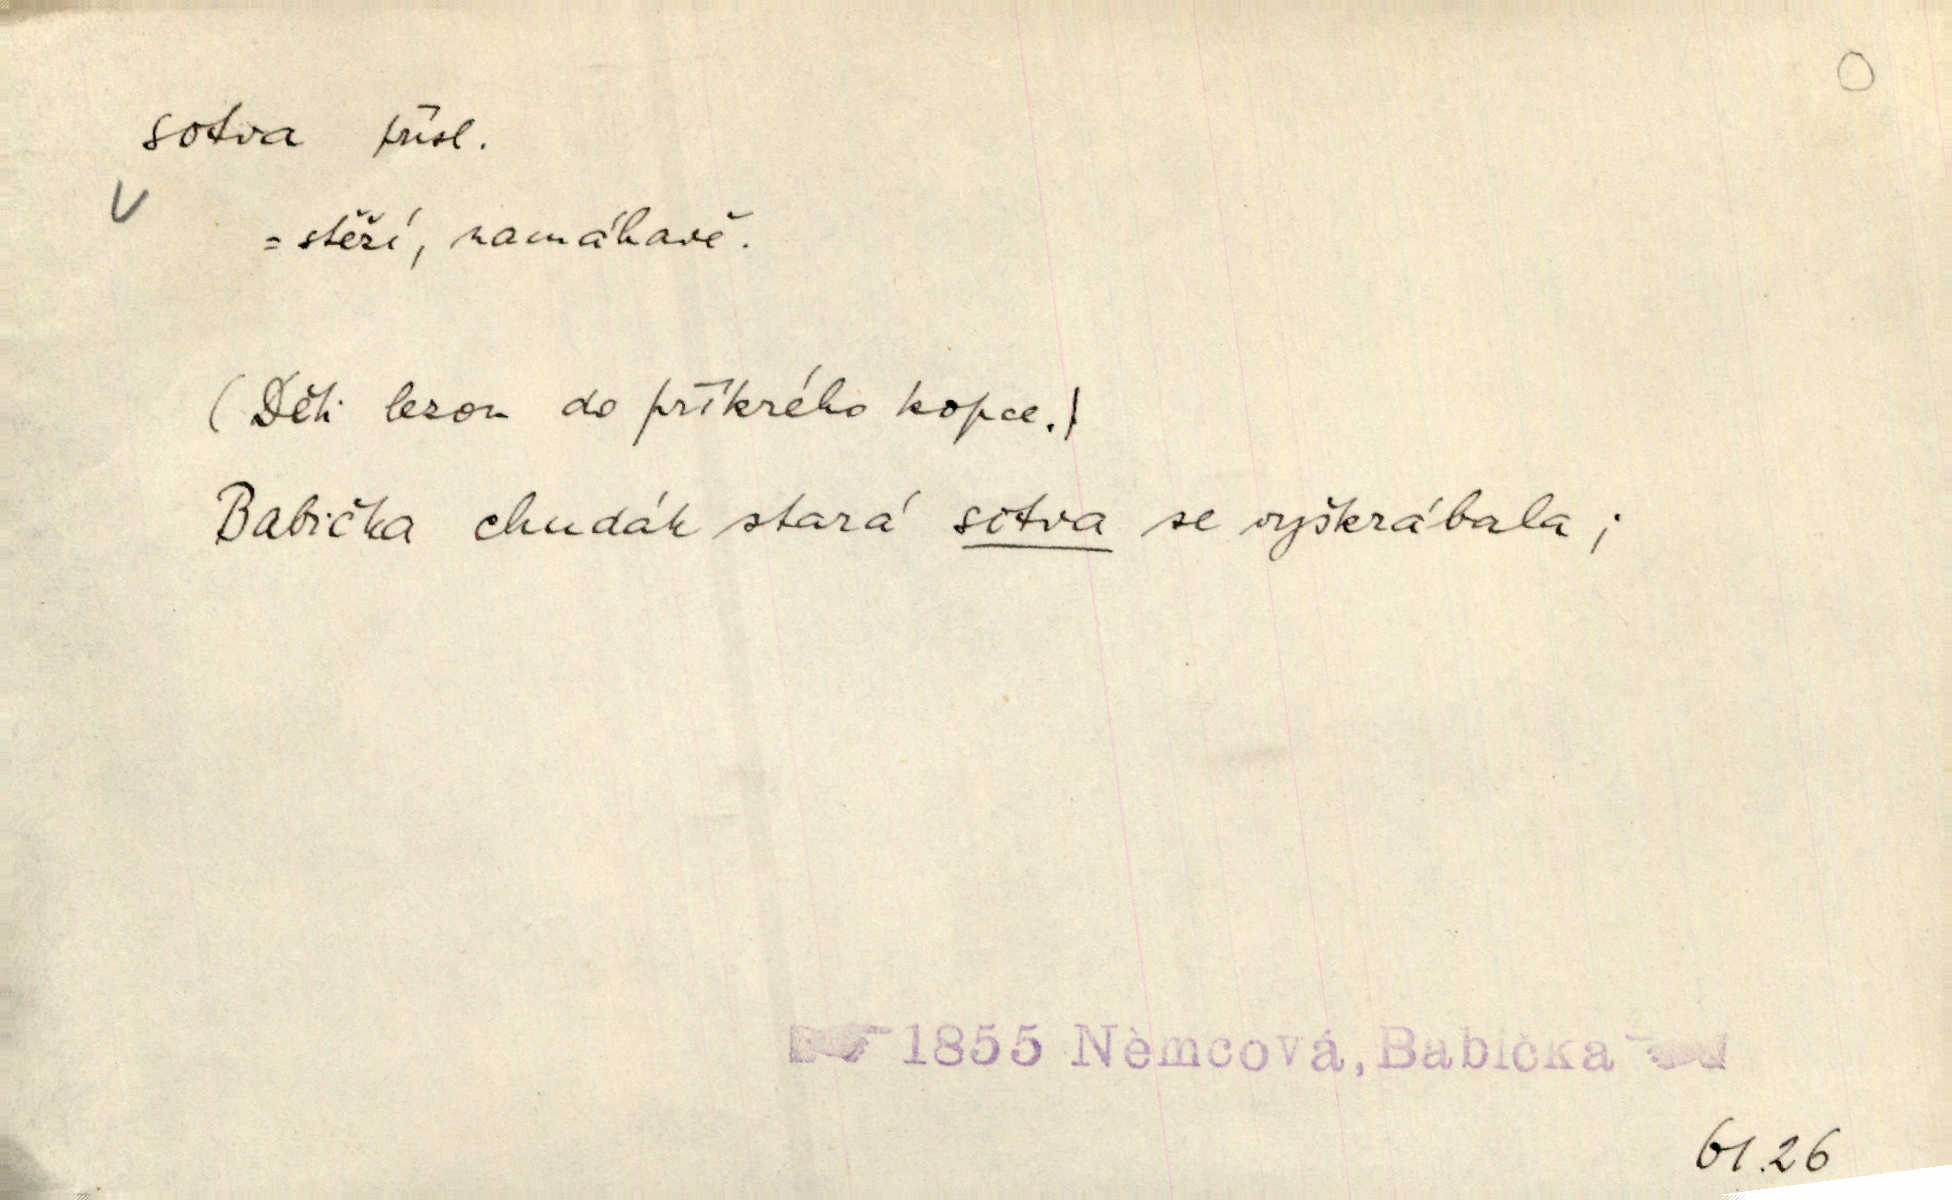 sotva přísl.
V
= stěží, namáhavě.
(Děti lezou do příkrého kopce.)
Babička chudák stará sotva se vyškrábala;
1855 Němcová, Babička
61.26